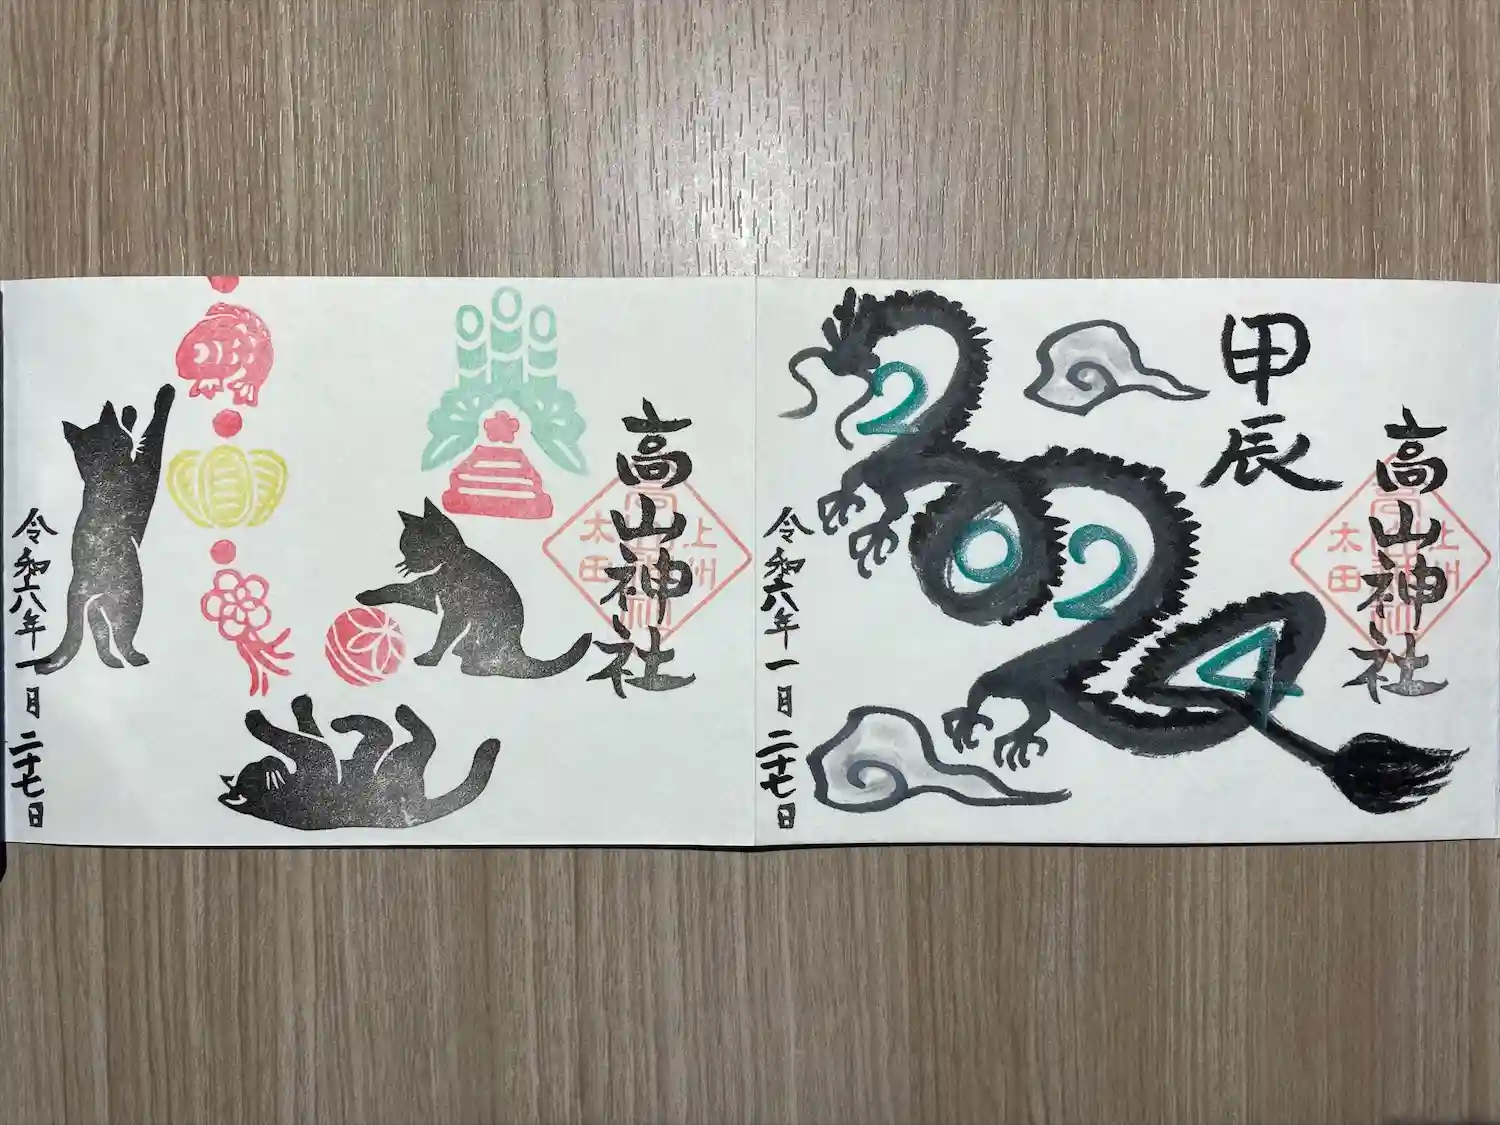 高山神社
上州
太田
甲辰
2024
令和六年一月二十七日
高山神社
上州
太田
令和六年一月二十七日